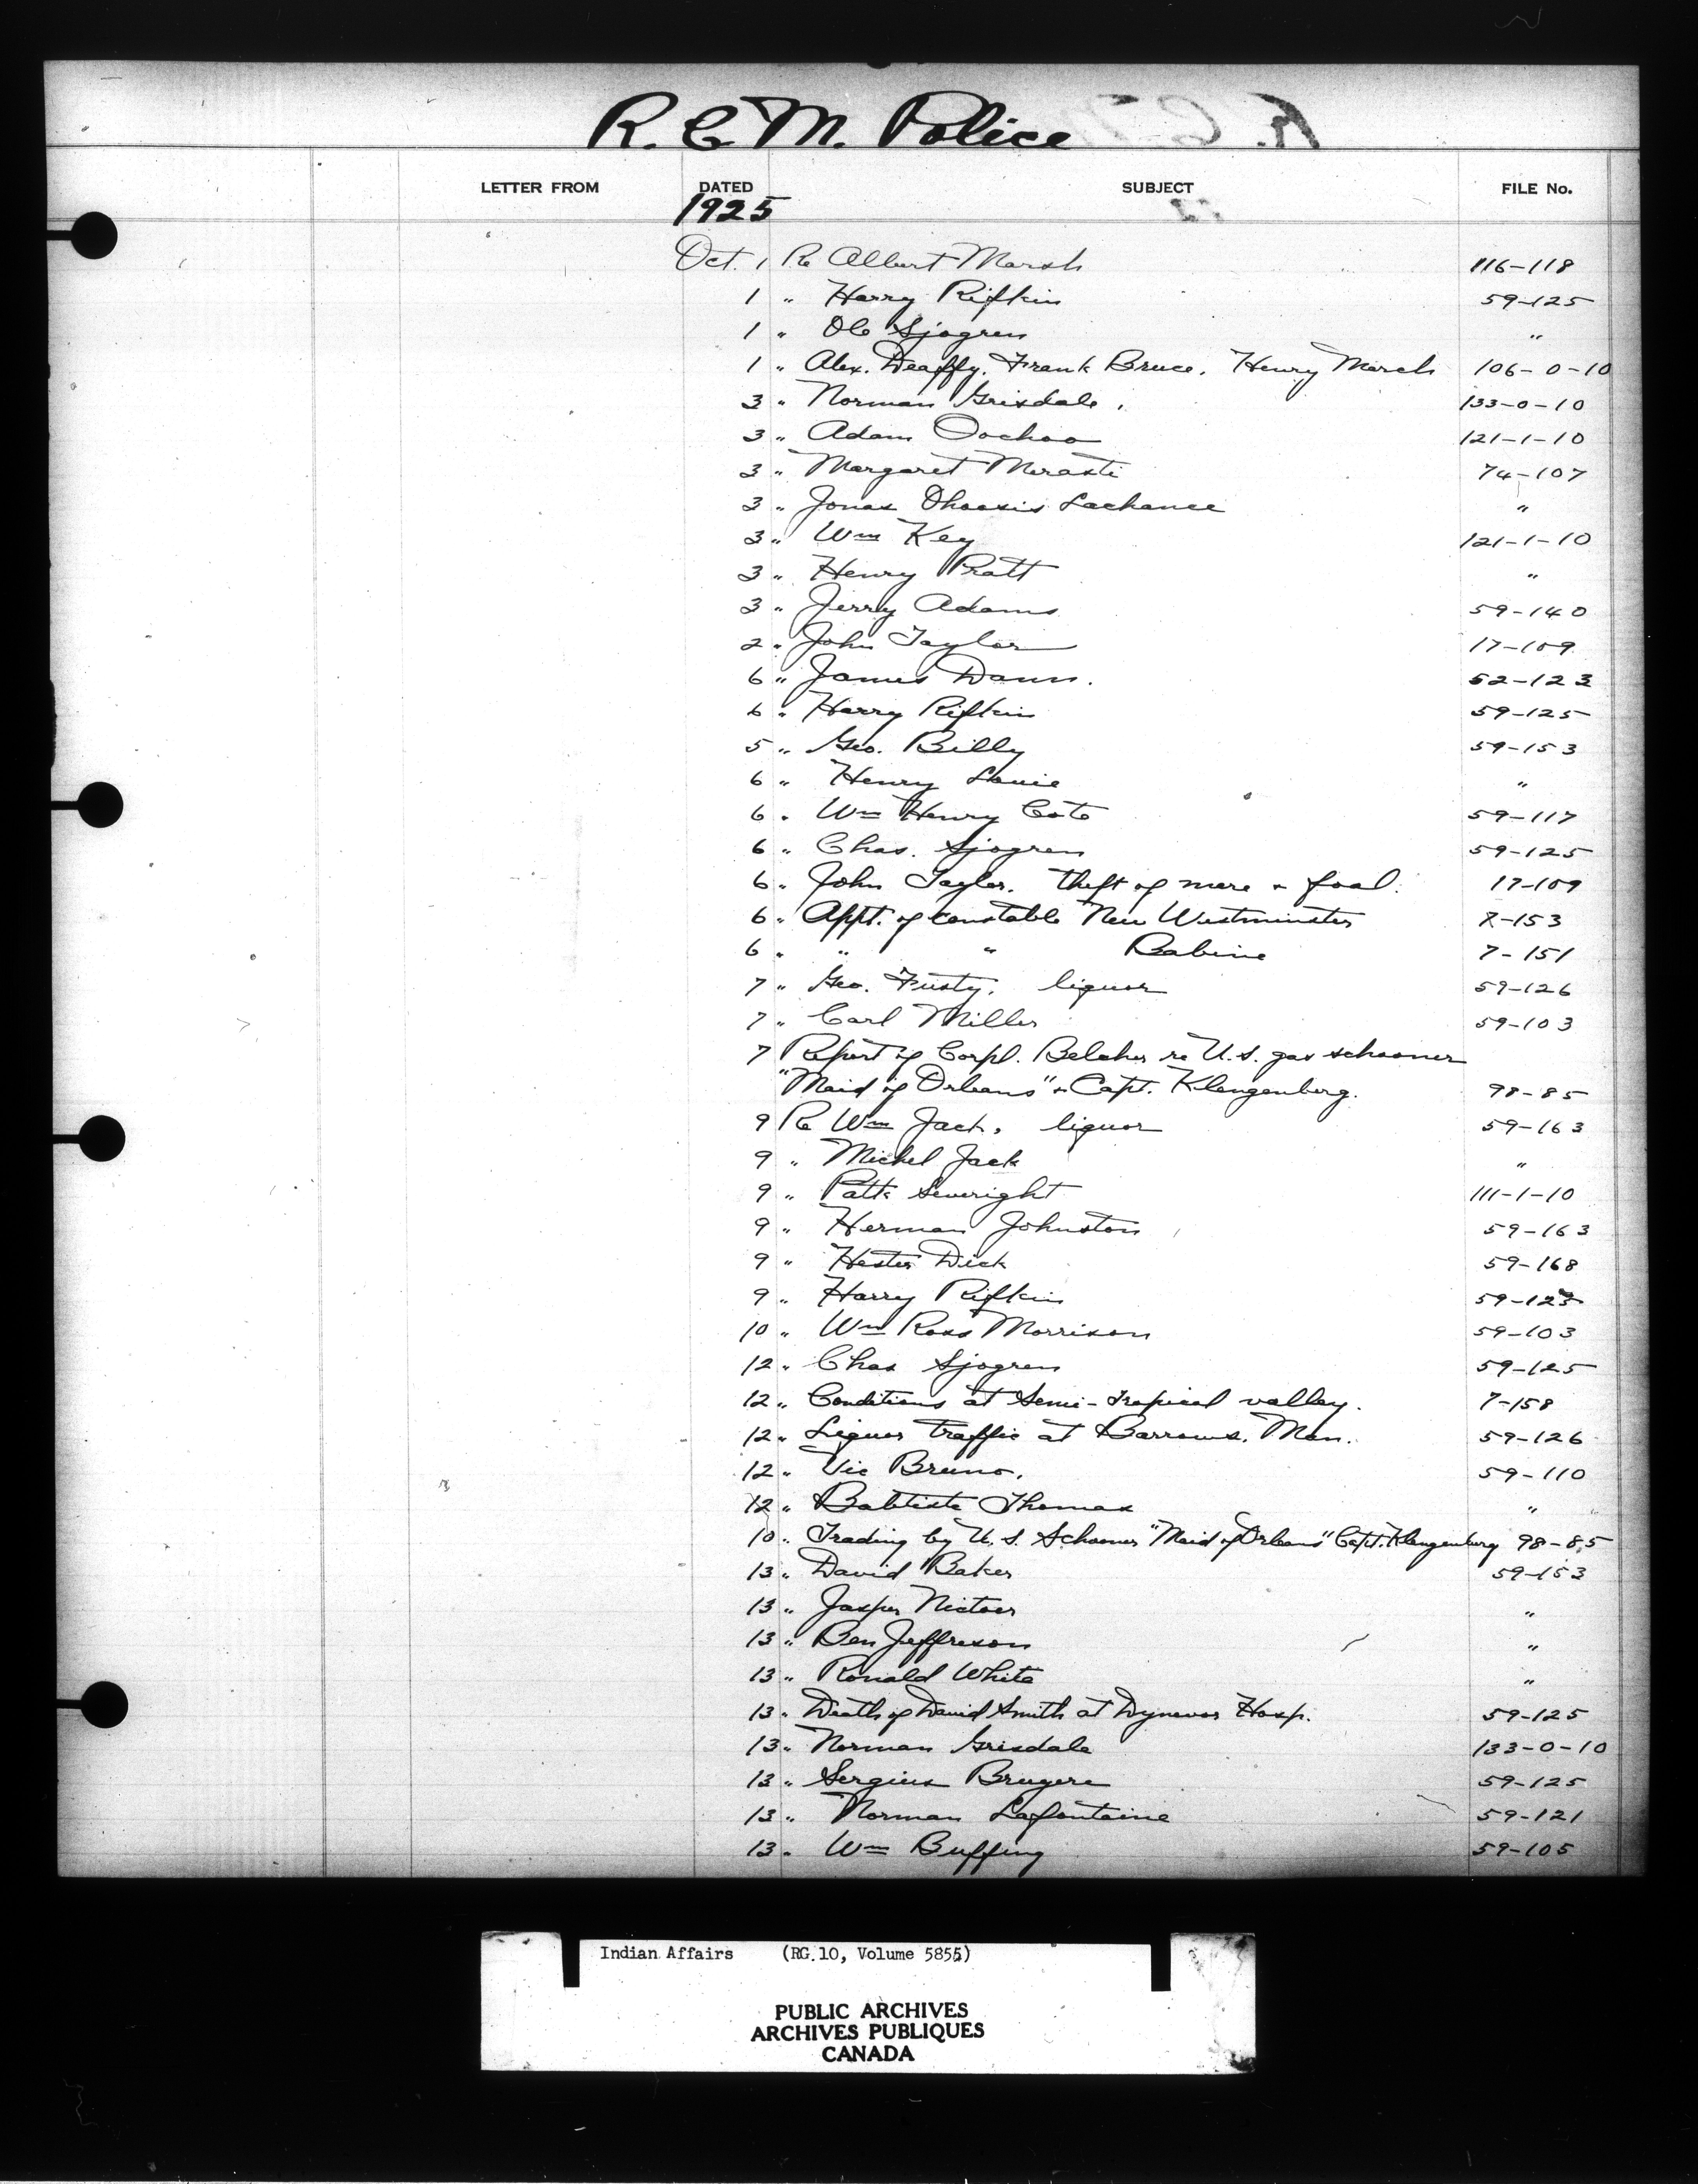 R. C. M. Police
LETTER FROM DATED SUBJECT FILE No.
1925
Oct. 1 Re Albert Marsh 116-118
1 " Harry Rifkin 59-125
1 " Ole Sjogren "
1 " Alex. Deaffy. Frank Bruce. Henry March 106-0-10
3 " Norman Grisdale. 133-0-10
3 " Adam Oochoo 121-1-10
3 " Margaret Merasti 74-107
3 " Jonas Lachance "
3 " Wm Key 121-1-10
3 " Henry Pratt "
3 " Jerry Adams 59-140
2 " John Taylor 17-109
6 " James Dann. 52-123
6 " Harry Rifkin 59-125
5 " Geo. Billy 59-153
6 " Henry Louie "
6 " Wm Henry Cote 59-117
6 " Chas. Sjogren 59-125
6 " John Taylor. theft of mare & foal. 17-109
6 " Appt. of constable New Westminster 7-153
6 " " " Babine 7-151
7 " Geo. Fusty. liquor 59-126
7 " Carl Miller 59-103
7 Report of Corpl. Belcher re U.S. gas schooner
"Maid of Orleans" & Capt. Klengenberg. 98-85
9 Re Wm Jack. liquor 59-163
9 " Michel Jack "
9 " Patk Severight 111-1-10
9 " Herman Johnston 59-163
9 " Hester Dick 59-168
9 " Harry Rifkin 59-125
10 " Wm Ross Morrison 59-103
12 " Chas Sjogren 59-125
12 " Conditions at Semi-tropical valley. 7-158
12 " Liquor traffic at Barrows. Man. 59-126
12 " Vic Bruno. 59-110
12 " Babtiste Thomas "
10 " Trading by U.S. Schooner "Maid of Orleans" Capt. Klengenberg 98-85
13 " David Baker 59-153
13 " Jasper "
13 " Ben Jefferson "
13 " Ronald White "
13 " Death of David Smith at Dynevor Hosp. 59-125
13 " Norman Grisdale 133-0-10
13 " Sergius Brugere 59-125
13 " Norman Lafontaine 59-121
13 " Wm Buffing 59-105
Indian Affairs (RG 10, Volume 5855)
PUBLIC ARCHIVES
ARCHIVES PUBLIQUES
CANADA